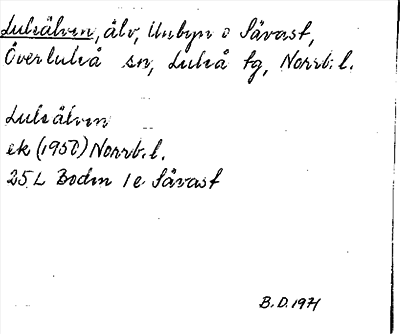 Luleälven, älv, Unbyn o Sävast,
Överluleå sn, Luleå tg, Norrb. l.
Luleälven
ek (1950) Norrb. l.
25 L Boden 1 e Sävast
B.D. 1971